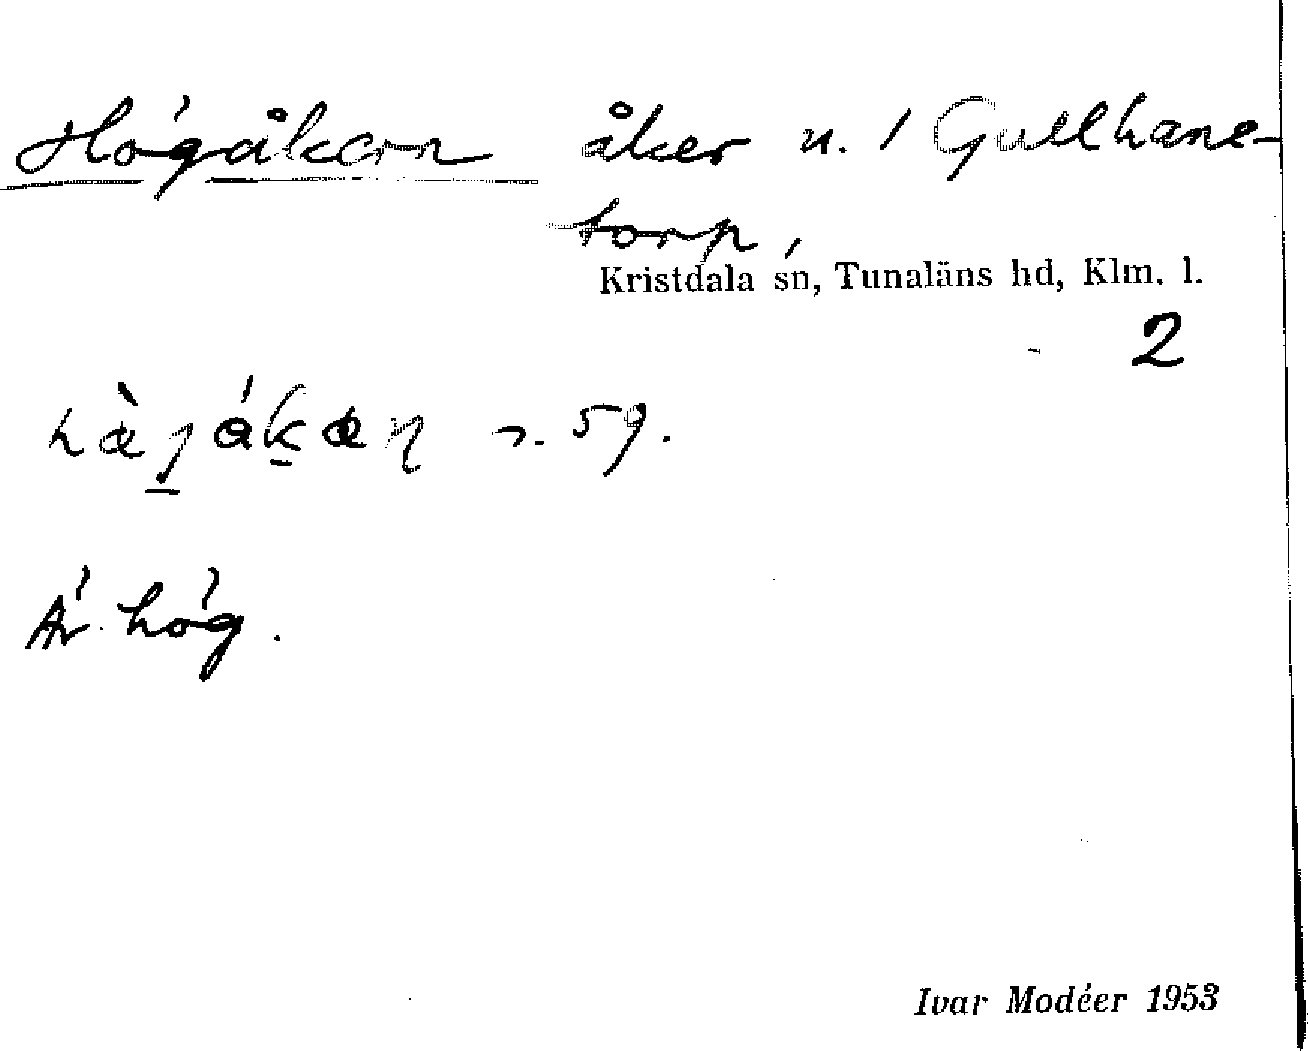 Högåkern åker n. 1 Gullhane-
torp,
Kristdala sn, Tunaläns hd, Klm. l.
2
s. 59.
Är hög.
Ivar Modéer 1953